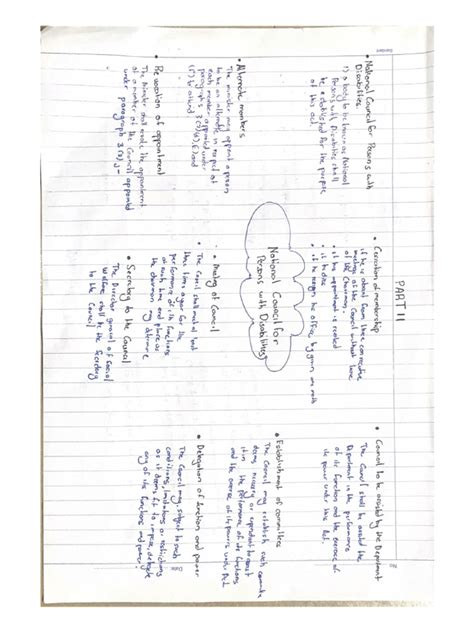 PART II
No:
• National Council for Persons with
Disabilities
1) a body to be known as National
Persons with Disabilities shall
be established for the purpose
of this act.
• Alternate members
The minister may appoint a person
to be an alternate in respect of
each member appointed under
paragraphs
• Revocation of appointment
The Minister may revoke the appointment
of a member of the Council appointed
under paragraph
• Cessation of membership
if he is absent from three consecutive
meetings of the Council without leave
of the Chairman.
• if his appointment is revoked
• if he dies
• if he resign his office by given one month
National Council for
Persons with Disabilities
• Meeting of Council
• The Council shall meet not
less than
performance of its functions
at such time and place as
the chairman may determine
• Secretary to the Council
The Director general of Social
Welfare shall be the Secretary
to the Council
• Council to be assisted by the Department
The Council shall be assisted the
Department in the performance
of its functions and the exercise of
its power under this Act.
• Establishment of committees
The Council may establish such committee
deems necessary or expedient to assist
in the performance of its functions
and the exercise of its powers under Act
• Delegation of function and power
The Council may, subject to such
conditions, limitations or restrictions
as it deems fit to impose, delegate
any of its functions and powers
Date